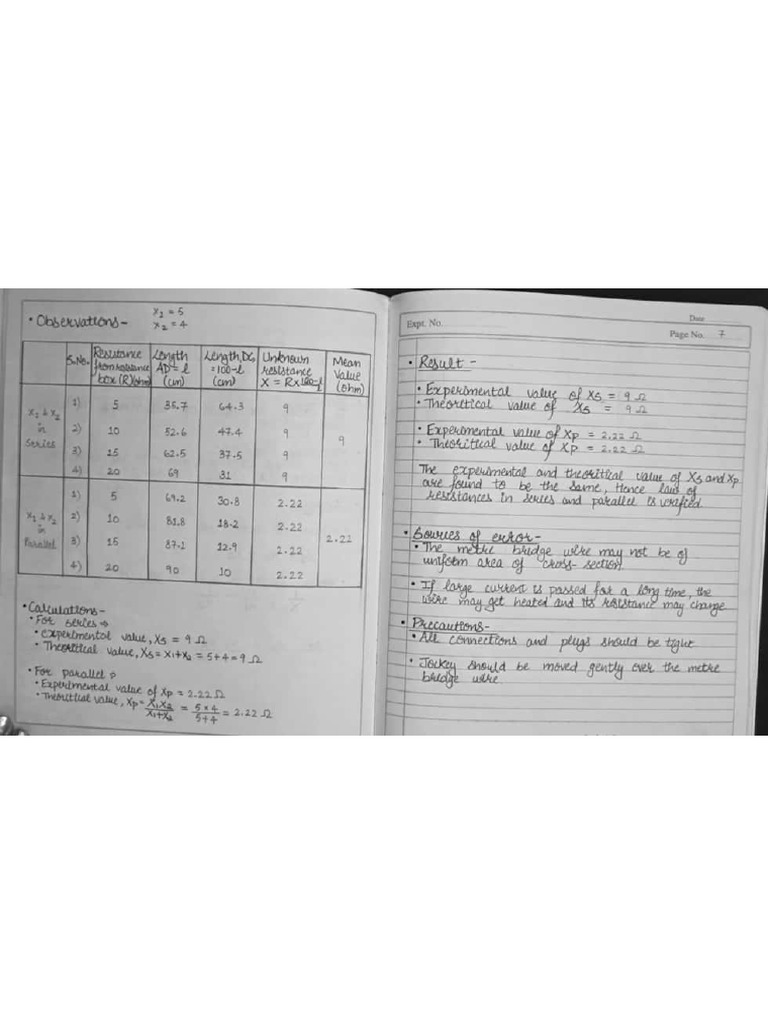 x₁ = 5
• Observations - x₂ = 4
S.No. Resistance from resistance box (R)(ohm) Length AD = l (cm) Length, DC, = 100-l (cm) Unknown resistance X = R x 100-l/l Mean Value (ohm)
x₁ & x₂ in Series
1) 5 35.7 64.3 9
2) 10 52.6 47.4 9
3) 15 62.5 37.5 9
4) 20 69 31 9
9
x₁ & x₂ in Parallel
1) 5 69.2 30.8 2.22
2) 10 81.8 18.2 2.22
3) 15 87.1 12.9 2.22
4) 20 90 10 2.22
2.22
• Calculations -
• For series ⇒
• experimental value, Xs = 9 Ω
• Theoretical value, Xs = x₁+x₂ = 5+4 = 9 Ω
• For parallel
• Experimental value of Xp = 2.22 Ω
• Theoritial value, Xp = X₁X₂/X₁+X₂ = 5×4/5+4 = 2.22 Ω
Date
Expt. No.
Page No. 7
• Result -
• Experimental value of Xs = 9 Ω
• Theoretical value of Xs = 9 Ω
• Experimental value of Xp = 2.22 Ω
• Theoritical value of Xp = 2.22 Ω
The experimental and theoritical value of Xs and Xp
are found to be the same, Hence law of
resistances in series and parallel is verified
• Sources of error -
• The metre bridge wire may not be of
uniform area of cross-section
• If large current is passed for a long time, the
wire may get heated and its resistance may change
• Precautions -
• All connections and plugs should be tight
• Jockey should be moved gently over the metre
bridge wire